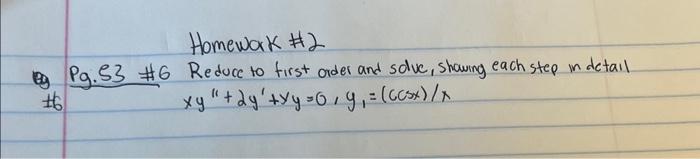 Homework #2
Pg. 53 #6 Reduce to first order and solve, showing each step in detail
#6 xy"+2y'+xy=0, y₁=(cosx)/x